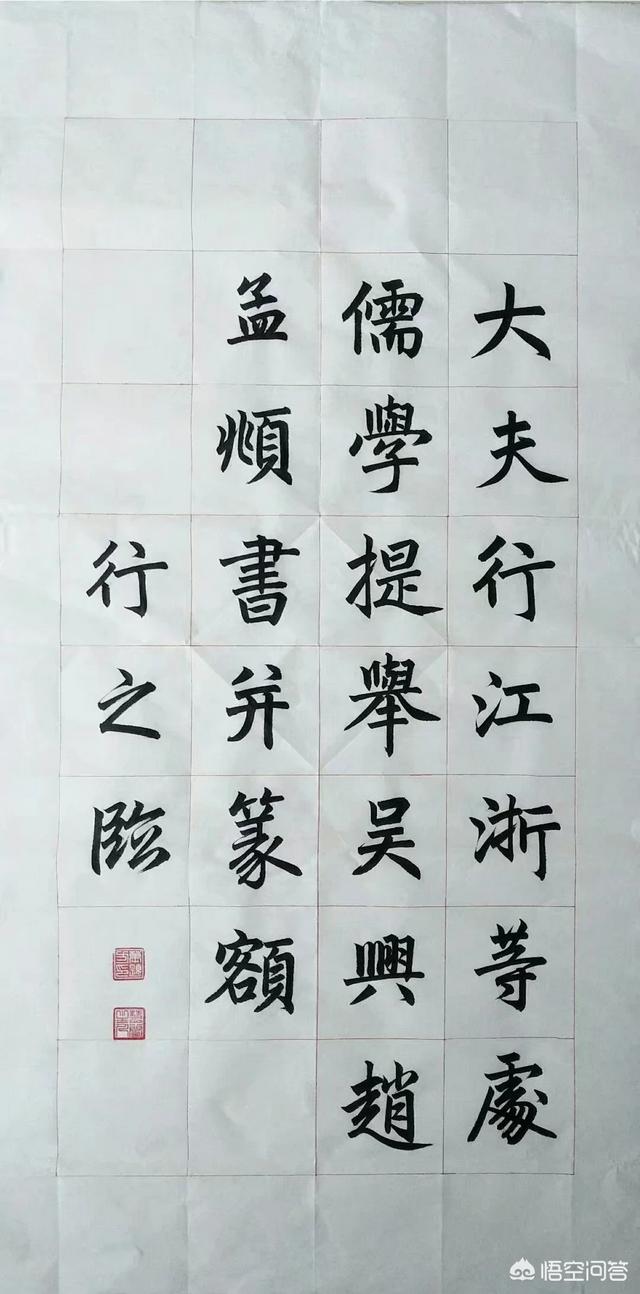 大夫行江浙等處
儒學提舉吳興趙
孟頫書并篆額
行之臨
悟空问答